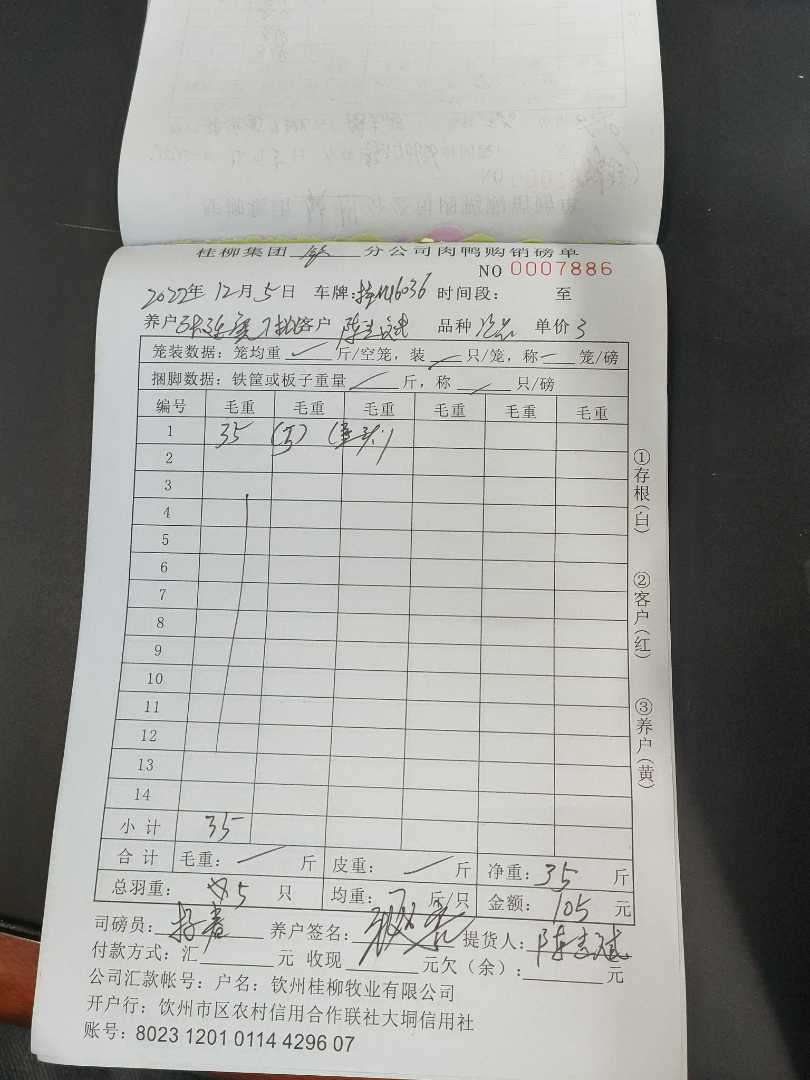 桂柳集团 钦 分公司肉鸭购销磅单
NO 0007886
2022年 12月5日 车牌: 时间段: 至
养户 客户 陈志斌 品种 单价 3
笼装数据: 笼均重 斤/空笼, 装 只/笼, 称 笼/磅
捆脚数据: 铁筐或板子重量 斤, 称 只/磅
编号 毛重 毛重 毛重 毛重 毛重 毛重
1 35
2
3
4
5
6
7
8
9
10
11
12
13
14
小计 35
合计 毛重: 斤 皮重: 斤 净重: 35 斤
总羽重: 5 只 均重: 7 斤/只 金额: 105 元
司磅员: 养户签名: 提货人: 陈志斌
付款方式: 汇 元 收现 元欠(余): 元
公司汇款帐号: 户名: 钦州桂柳牧业有限公司
开户行: 钦州市区农村信用合作联社大垌信用社
账号: 8023 1201 0114 4296 07
①存根(白)
②客户(红)
③养户(黄)